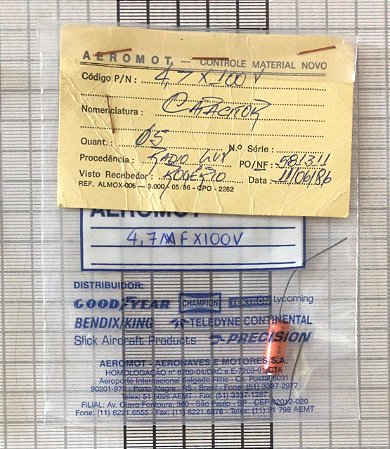 AEROMOT — CONTROLE MATERIAL NOVO
Código P/N: 4,7 X 100 V
Nomenclatura: CAPACITOR
Quant.: 05 N.º Série:
Procedência: RADIO LUY PO/NF 581311
Visto Recebedor: ROGÉRIO Data: 11/06/86
REF. ALMOX-006 — 3.000 - 05/86 - CPO - 2282
AEROMOT
4,7 MF X 100V
DISTRIBUIDOR:
GOODYEAR CHAMPION TEXTRON Lycoming
BENDIX/KING TELEDYNE CONTINENTAL
Slick Aircraft Products PRECISION
AEROMOT - AERONAVES E MOTORES S.A.
HOMOLOGAÇÃO nº 6709-04/DAC e E-7209-01/CTA
Aeroporto Internacional Salgado Filho - Cx. Postal 8031
90201-970 - Porto Alegre - RS - Brasil - Fone (51) 3337-2977
Telex: 51 5026 AEMT - Fax (51) 3337-1287
FILIAL: Av. Olavo Fontoura, 380 - São Paulo - SP - CEP 02012-020
Fone: (11) 6221.6555 - Fax: (11) 6221-6976 - Telex: (11) 31 798 AEMT